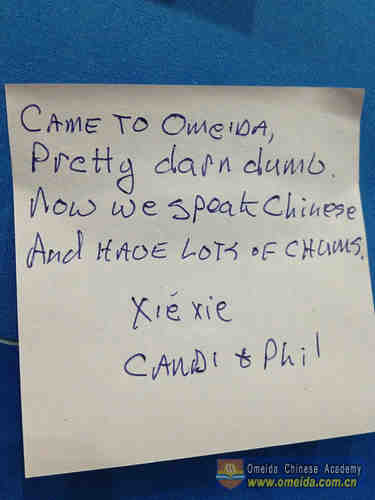 CAME TO OMEIDA,
Pretty darn dumb.
Now we speak Chinese
And HAVE LOTS OF CHUMS.
Xié xie
CANDI & Phil
Omeida Chinese Academy
www.omeida.com.cn